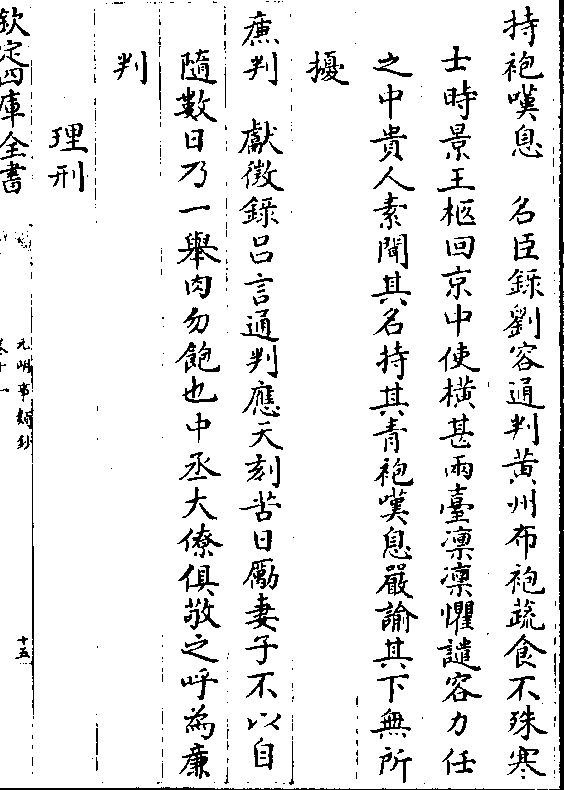 持袍嘆息　名臣錄劉容通判黃州布袍蔬食不殊寒
士時景王柩回京中使橫甚兩臺凜凜懼譴容力任
之中貴人素聞其名持其青袍嘆息嚴諭其下無所
擾
廉判　獻徵錄呂言通判應天刻苦日勵妻子不以自
隨數日乃一舉肉勿飽也中丞大僚俱敬之呼為廉
判
理刑
欽定四庫全書
元明事類鈔
卷十一
十五